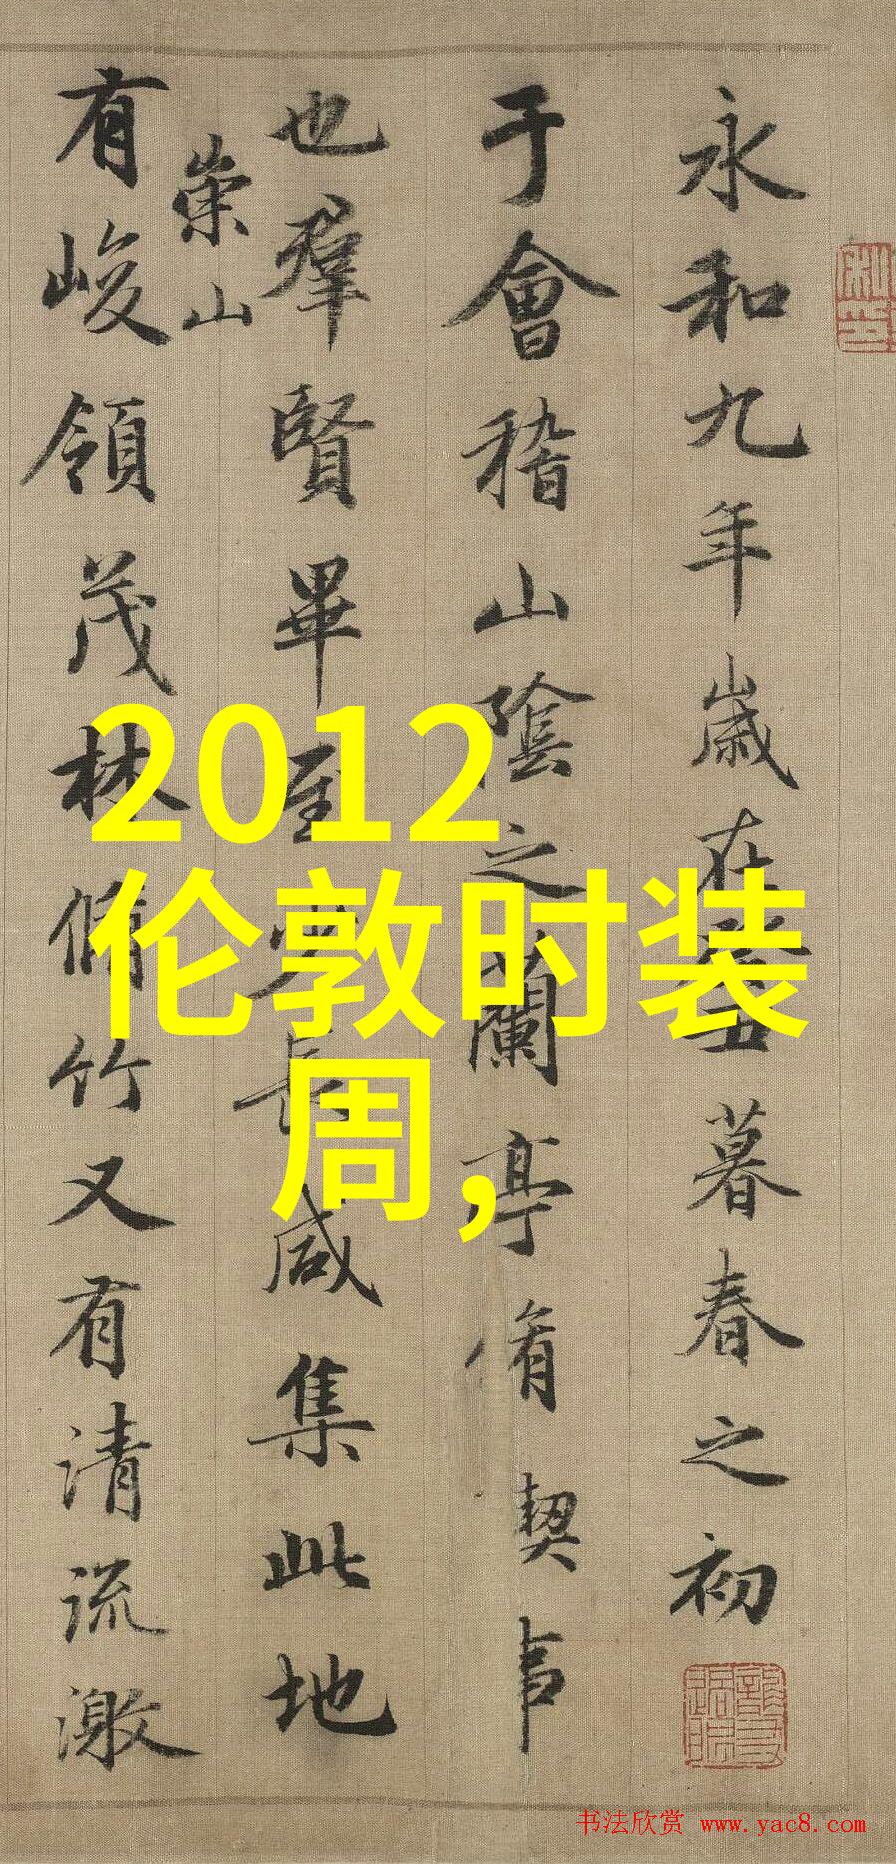 永和九年歲在癸丑暮春之初
于會稽山陰之蘭亭脩禊事
也羣賢畢至少長咸集此地
有崇山峻領茂林脩竹又有清流激
2012
伦敦时装
周,
书法欣赏 www.yac8.com